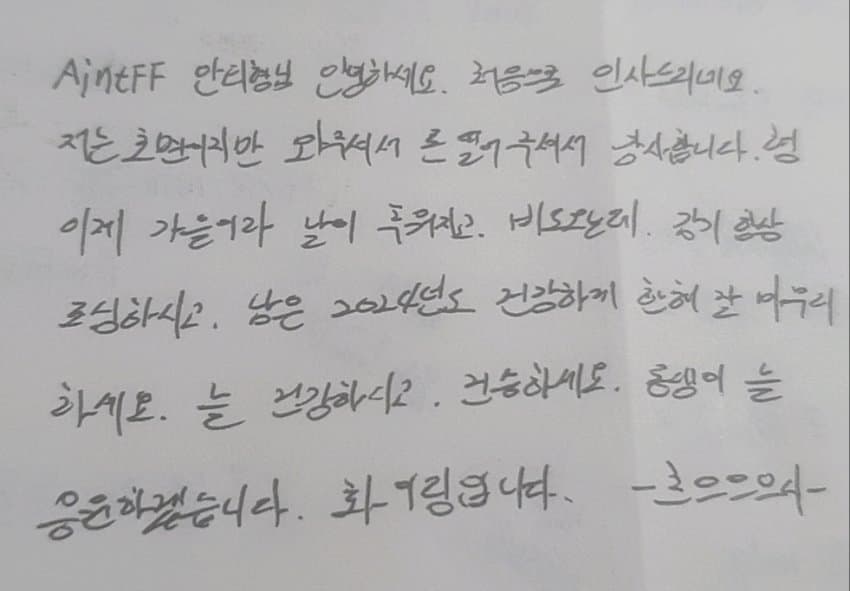 AjntFF 안티형님 안녕하세요. 처음으로 인사드리네요.
저는 초면이지만 와주셔서 돈 떨어주셔서 감사합니다. 형
이제 가을이라 날이 추워지고. 비도오는데. 감기 항상
조심하시고. 남은 2024년도 건강하게 한해 잘 마무리
하세요. 늘 건강하시고. 건승하세요. 동생이 늘
응원하겠습니다. 화이팅입니다. -흐으으으시-